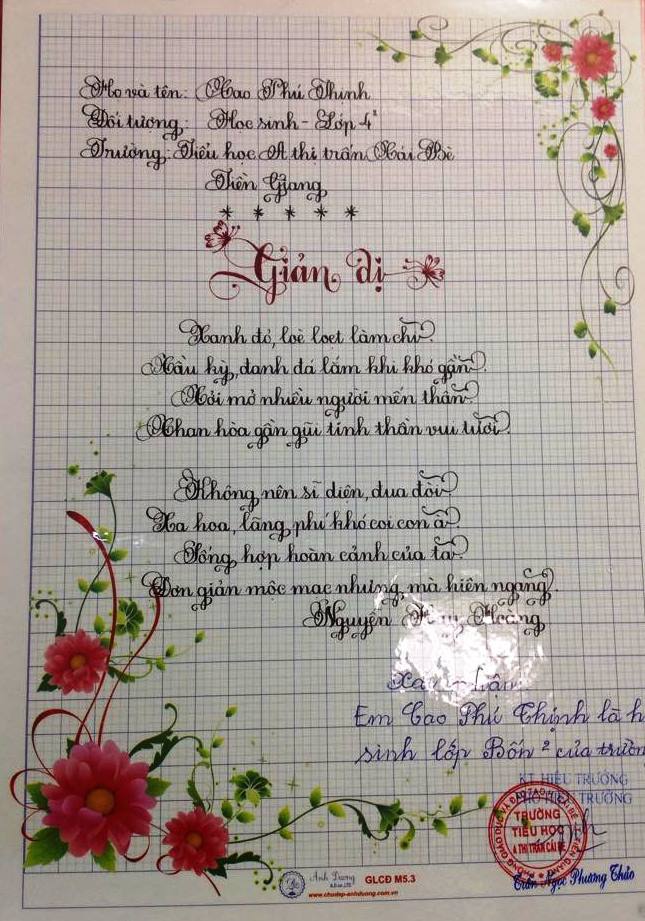 Họ và tên: Cao Phú Thịnh
Đối tượng: Học sinh - Lớp 4²
Trường: Tiểu học A thị trấn Cái Bè
Tiền Giang
* * * * *
Giản dị
Xanh đỏ, loè loẹt làm chi
Cầu kỳ, đanh đá lắm khi khó gần
Cởi mở nhiều người mến thân
Chan hòa gần gũi tinh thần vui tươi.
Không nên sĩ diện, đua đòi
Xa hoa, lãng phí khó coi con à
Sống hợp hoàn cảnh của ta
Đơn giản mộc mạc nhưng mà hiên ngang.
Nguyễn Huy Hoàng
Xác nhận
Em Cao Phú Thịnh là h
sinh lớp Bốn² của trườn
KT. HIỆU TRƯỞNG
PHÓ HIỆU TRƯỞNG
TRƯỜNG
TIỂU HỌC
A THỊ TRẤN CÁI BÈ
Trần Ngọc Phương Thảo
Ánh Dương
GLCĐ M5.3
www.chudep-anhduong.com.vn